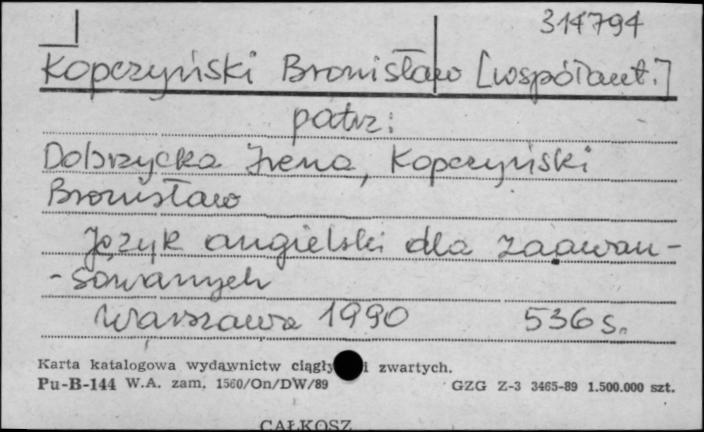 314794
Kopczyński Bronisław [współaut.]
patrz:
Dobrzycka Irena, Kopczyński
Bronisław
Język angielski dla zaawan-
-sowanych
Warszawa 1990 536 s.
Karta katalogowa wydawnictw ciągły i zwartych.
Pu-B-144 W.A. zam. 1560/On/DW/89 GZG Z-3 3465-89 1.500.000 szt.
CAŁKOSZ